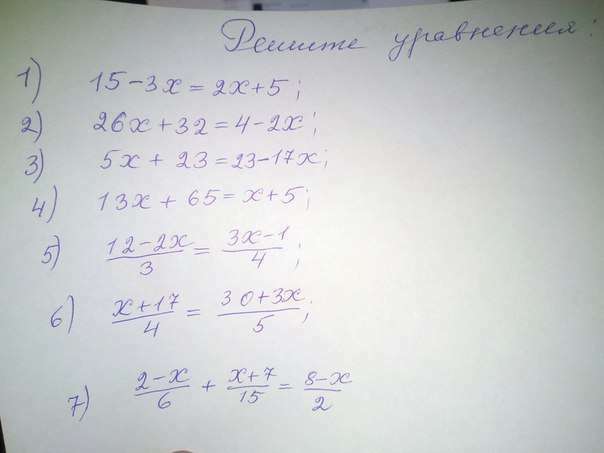 Решите уравнения:
1) 15-3x=2x+5;
2) 26x+32=4-2x;
3) 5x + 23=23-17x;
4) 13x + 65=x+5;
5) (12-2x)/3 = (3x-1)/4;
6) (x+17)/4 = (30+3x)/5;
7) (2-x)/6 + (x+7)/15 = (8-x)/2